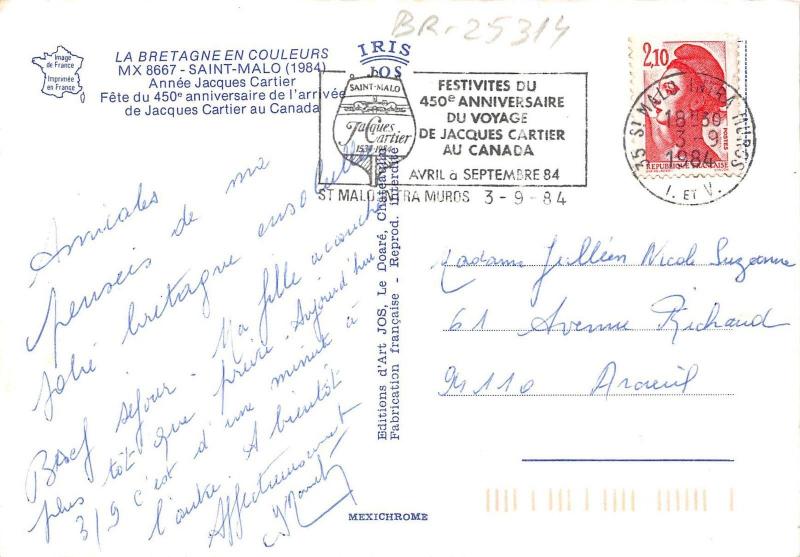 BR-25314
Image
de France
Imprimée
en France
LA BRETAGNE EN COULEURS
MX 8667 - SAINT-MALO (1984)
Année Jacques Cartier
Fête du 450e anniversaire de l'arrivée
de Jacques Cartier au Canada
IRIS
JOS
SAINT-MALO
Jacques
Cartier
1534-1984
FESTIVITES DU
450e ANNIVERSAIRE
DU VOYAGE
DE JACQUES CARTIER
AU CANADA
AVRIL à SEPTEMBRE 84
ST MALO INTRA MUROS 3-9-84
2,10
POSTES
REPUBLIQUE FRANÇAISE
35 ST MALO INTRA MUROS
18H30
3-9
1984
I. ET V.
Amicales pensées de ma
jolie bretagne ensoleillée
Bref séjour. Ma fille a accouché
plus tôt que prévu. Aujourd'hui
3/9 c'est d'une minute à
l'autre. A bientôt
Affectueusement
Madame Jullien Nicole Suzanne
61 Avenue Richaud
94110 Arcueil
Editions d'Art JOS, Le Doaré, Châteaulin
Fabrication française - Reprod. interdite
MEXICHROME